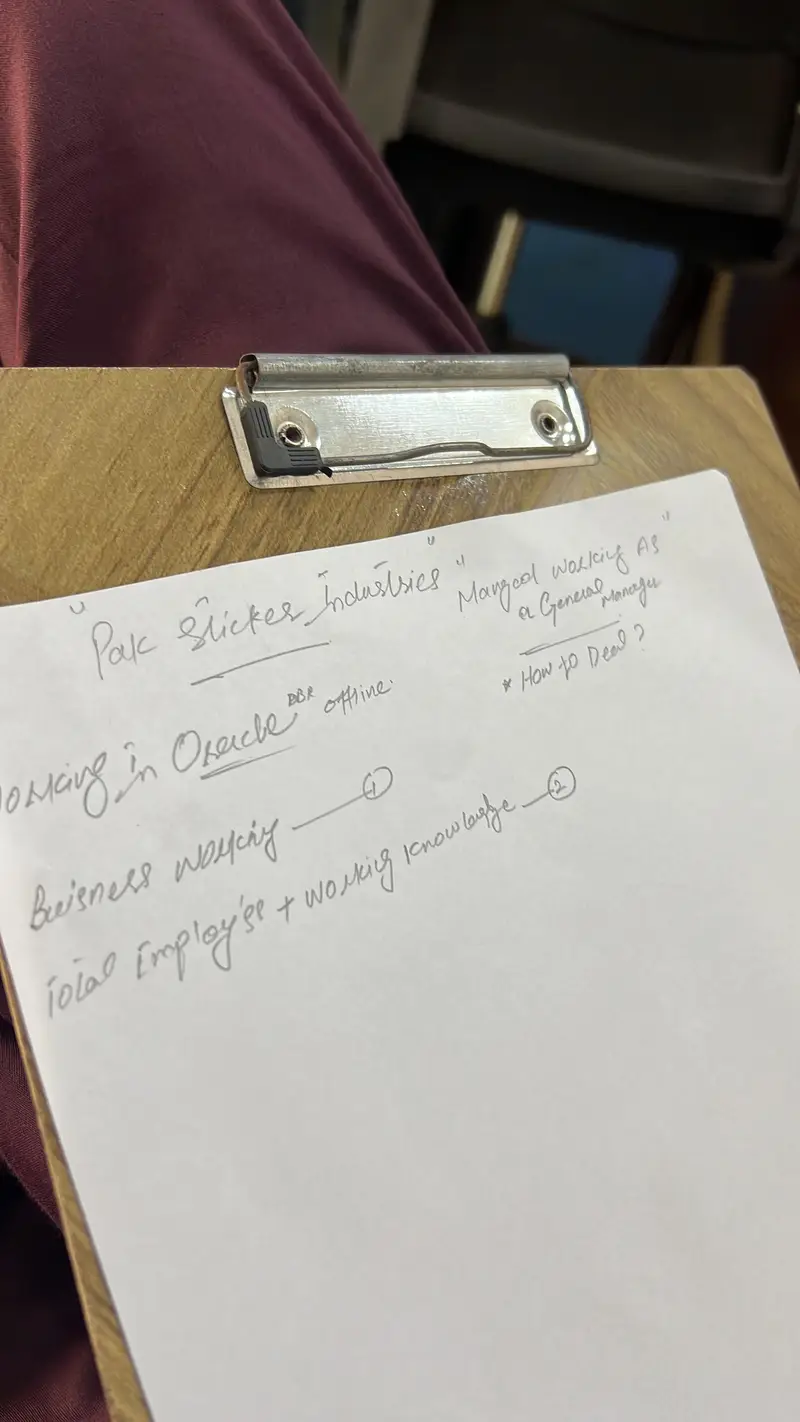 "Pak Sticker Industries"
"Working As
a General Manager"
* How to Deal?
Working in Oracle offline
Buisness working — 1
Total Employ'ss + working knowledge — 2